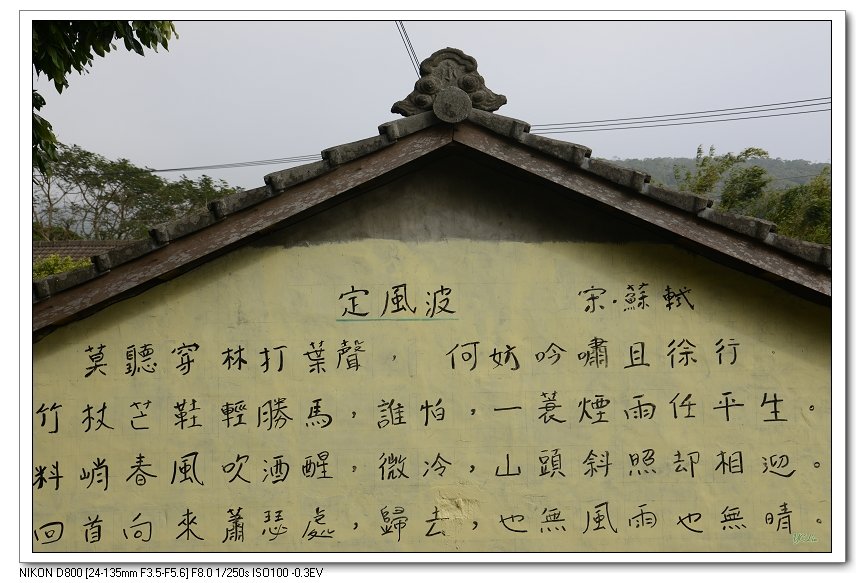 定風波 宋·蘇軾
莫聽穿林打葉聲，何妨吟嘯且徐行。
竹杖芒鞋輕勝馬，誰怕，一蓑煙雨任平生。
料峭春風吹酒醒，微冷，山頭斜照却相迎。
回首向來蕭瑟處，歸去，也無風雨也無晴。
NIKON D800 [24-135mm F3.5-F5.6] F8.0 1/250s ISO100 -0.3EV